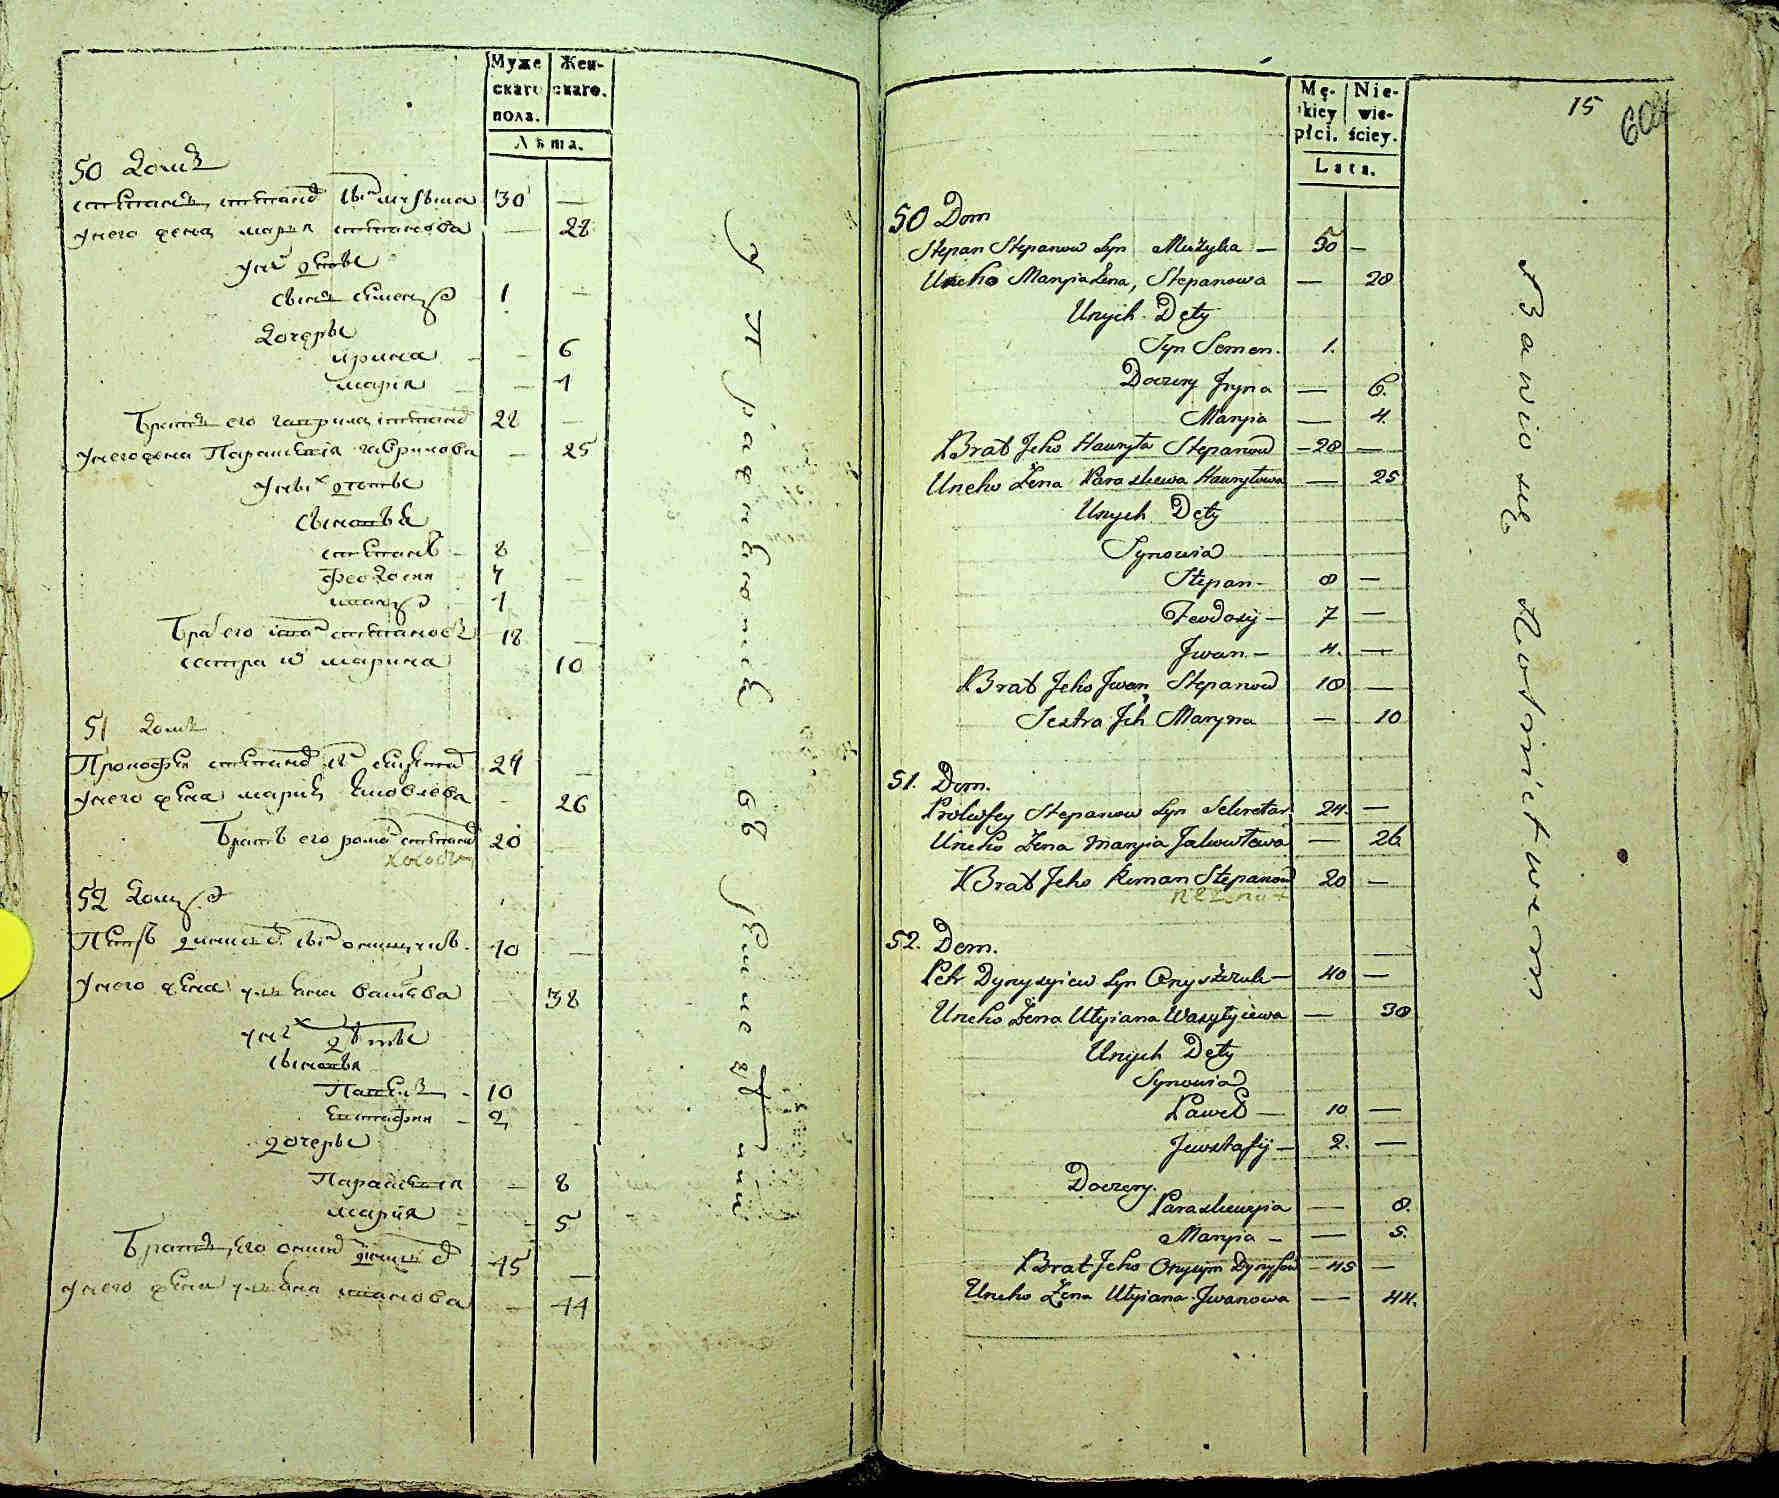 Муже Жен-
скаго скаго.
пола.
Лѣта.
50 домъ
степанъ степановъ сынъ музыка 30 —
у него жена марья степанова — 28
у нихъ дѣти
сынъ семенъ 1 —
дочери
ирина — 6
марія — 4
Братъ его гаврила степановъ 28 —
у него жена Параскевія гаврилова — 25
у нихъ дѣти
сыновья
степанъ 8
феодосий 7
иванъ 4
Братъ его иванъ степановъ 18
сестра их марина 10
51 домъ
Прокофей степановъ сынъ секретар 24 —
у него жена мария Яковлева — 26
Братъ его романъ степановъ 20
холостъ
52 домъ
Петръ денисьевъ сынъ онищукъ 40 —
у него жена ульяна васильева — 38
у нихъ дѣти
сыновья
Павелъ 10
Евстафий 2
дочери
Параскевія — 8
мария — 5
Братъ его онисимъ денисьевъ 45 —
у него жена ульяна иванова — 44
Упражняются въ
15
60
Mę- Nie-
kiey wie-
płci. ściey.
Lata.
50 Dom
Stepan Stepanow Syn Muzyka — 30 —
Uneho Maryia Żena, Stepanowa — 28
Unych Dęty
Syn Semen. 1.
Doczery Jryna — 6.
Maryia — 4.
Brat Jeho Hawryła Stepanow — 28 —
Uneho Żena Paraskewa Hawryłowa — 25
Unych Dęty
Synowia
Stepan — 8 —
Feodosij — 7 —
Jwan — 4. —
Brat Jeho Jwan Stepanow 18 —
Sestra Jch Maryna — 10
51. Dom.
Prokofey Stepanow Syn Sekretar. 24. —
Uneho Żena Maryia Jakowlewa — 26.
Brat Jeho Roman Stepanow 20 —
52. Dom.
Petr Dynysyiew Syn Onyszczuk — 40 —
Uneho Żena Ulyiana Wasylyiewa — 38
Unych Dęty
Synowia
Paweł — 10 —
Jewstafij — 2. —
Doczery.
Paraskewyia — 8.
Maryia — — 5.
Brat Jeho Onysym Dynysow — 45 —
Uneho Żena Ulyiana Jwanowa — 44.
Bawio się Rolnictwem